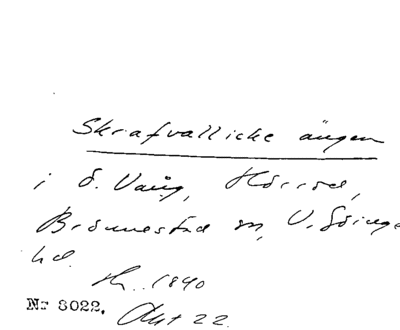 Skrafvallicke ängen
i S. Vång, Hörröd,
Brönnestad sn, V. Göinge
hd.
1840
Nr 8022. Akt 22.